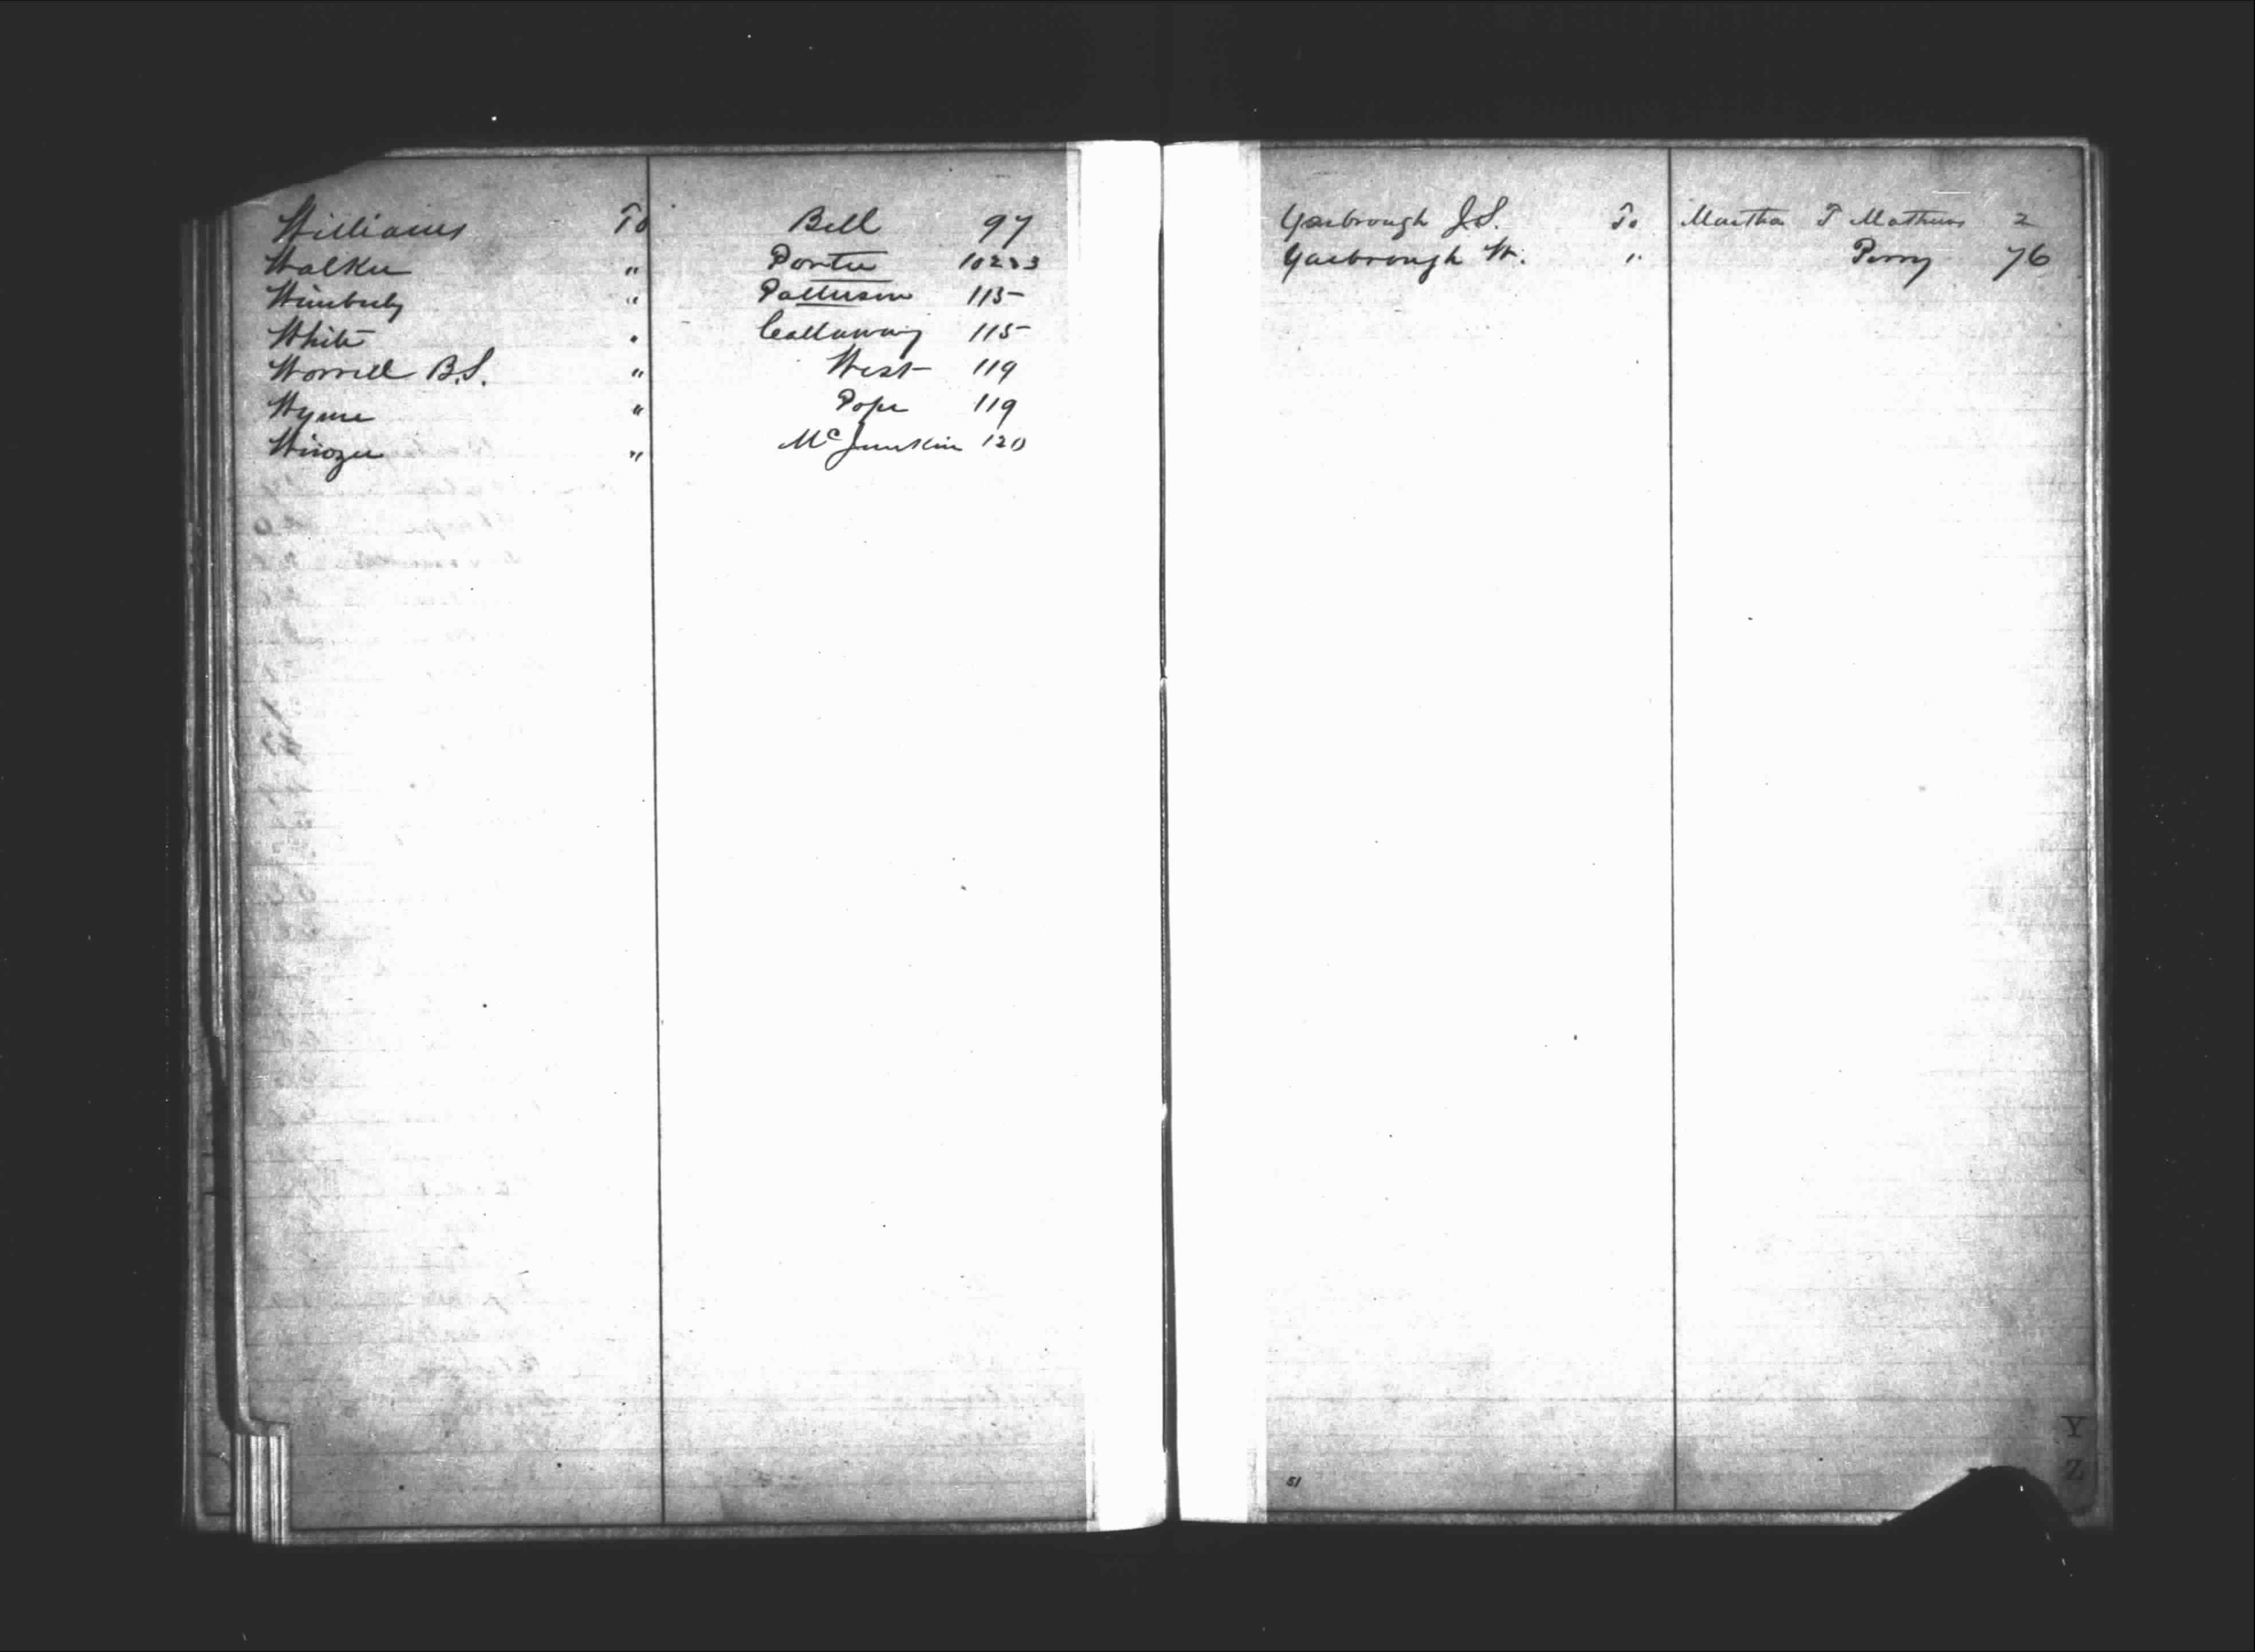 Williams To Bell 97
Walker " Porter
Wimberly " Patterson 115
White " Callaway 115
Worrill B.S. " West 119
Wynn " Pope 119
" McJunkin 120
Yarbrough J.S. To Martha T Mathews 2
Yarbrough W. " Perry 76
51
Y
Z